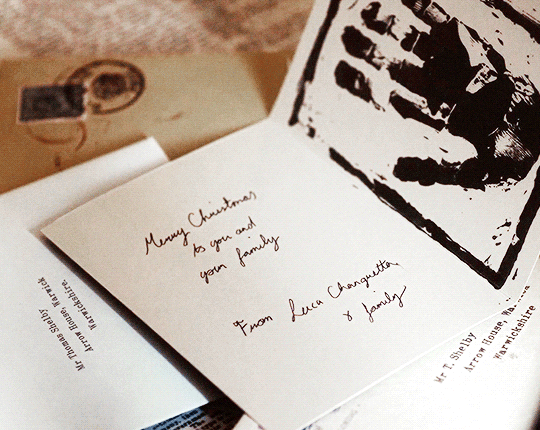 Merry Christmas
to you and
your family
From Luca Changretta
& family
Mr Thomas Shelby
Arrow House, Warwick
Warwickshire.
Mr T. Shelby
Arrow House,
Warwickshire